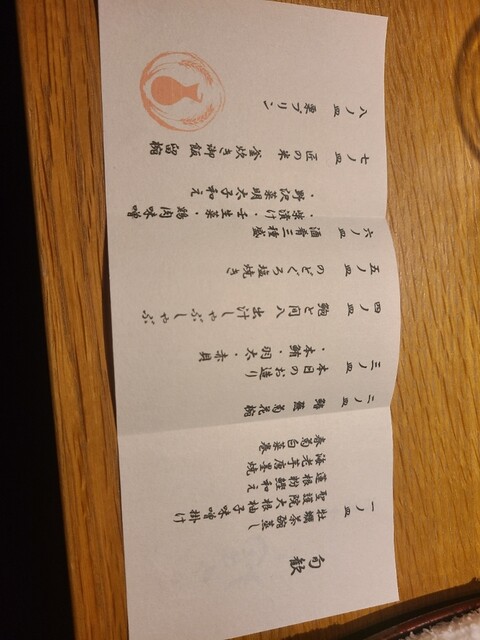 旬歓
一ノ皿
牡蠣茶碗蒸し
聖護院大根柚子味噌掛け
蓮根粉鰹和え
海老芋唐墨焼
春菊白菜巻
二ノ皿
蕪菊花椀
三ノ皿
本日のお造り
・本鮪・羽太・赤貝
四ノ皿
鮑と間八
出汁しゃぶしゃぶ
五ノ皿
のどぐろ塩焼き
六ノ皿
酒肴三種盛
漬け・壬生菜鶏肉味噌
・野沢菜明太子和え
七ノ皿
匠の米
釜炊き御飯
留椀
八ノ皿
栗プリン